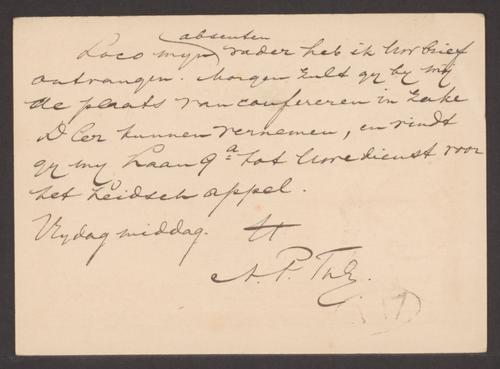 absenten
Loco mijn vader heb ik Uw brief
ontvangen. Morgen zult gy by my
de plaats van confereren in zake
D Cer kunnen vernemen, en vindt
gy my Laan 9a tot Uwe dienst voor
het Leidsch appel.
Vrydag middag. tt
A. P. Th